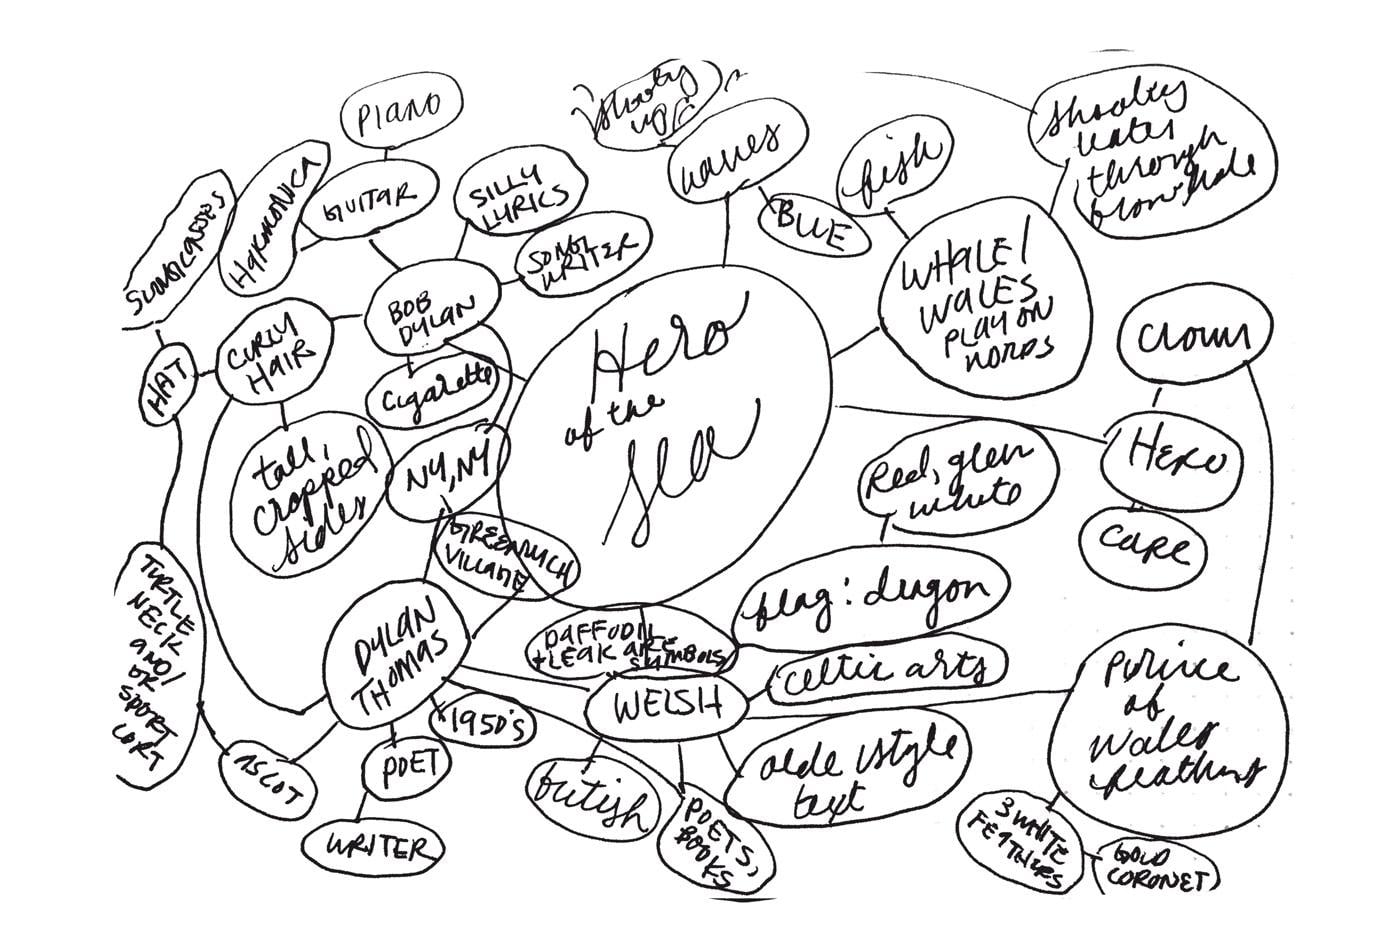 PIANO
GUITAR
HARMONICA
SUNGLASSES
SILLY
LYRICS
SONG
WRITER
BOB
DYLAN
CURLY
HAIR
HAT
Cigarette
tall,
cropped
sides
NY, NY
GREENWICH
VILLAGE
waves
BLUE
fish
WHALE /
WALES
PLAY ON
WORDS
water
through
Hero
of the
Sea
Crown
HERO
CAPE
Red, green
white
flag: dragon
DAFFODIL
+ LEAK ARE
SYMBOLS
celtic arts
WELSH
DYLAN
THOMAS
1950's
POET
WRITER
ASCOT
TURTLE
NECK
AND/
OR
SPORT
british
POETS,
BOOKS
olde style
text
Prince
of
Wales
feathers
3 WHITE
FEATHERS
GOLD
CORONET